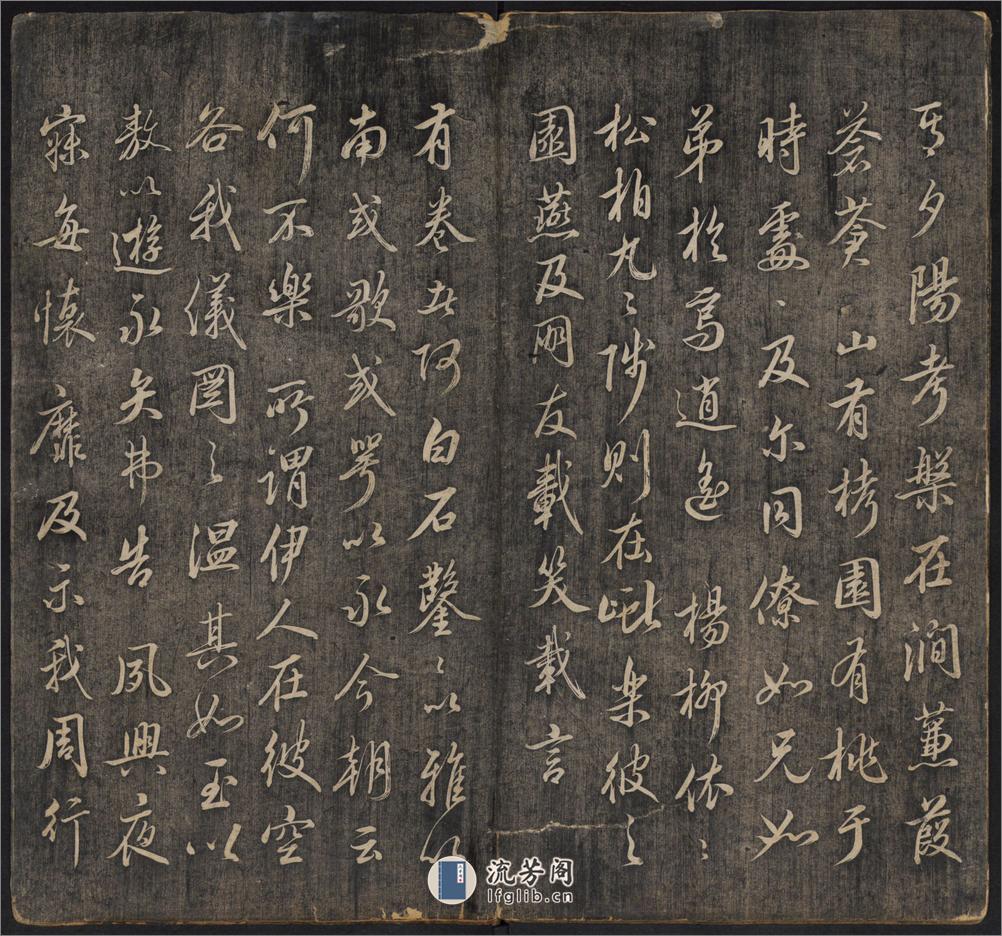 其夕陽考槃在澗蒹葭
蒼蒼山有栲園有桃于
時處〻及尔同僚如兄如
弟於焉逍遙楊柳依〻
松柏丸〻陟則在巘樂彼之
園燕及朋友載笑載言
有卷者阿白石鑿〻以雅以
南或歌或咢以永今朝云
何不樂所謂伊人在彼空
谷我儀圖之温其如玉以
敖以遊永矢弗告夙興夜
寐每懷靡及示我周行
流芳阁
lfglib.cn